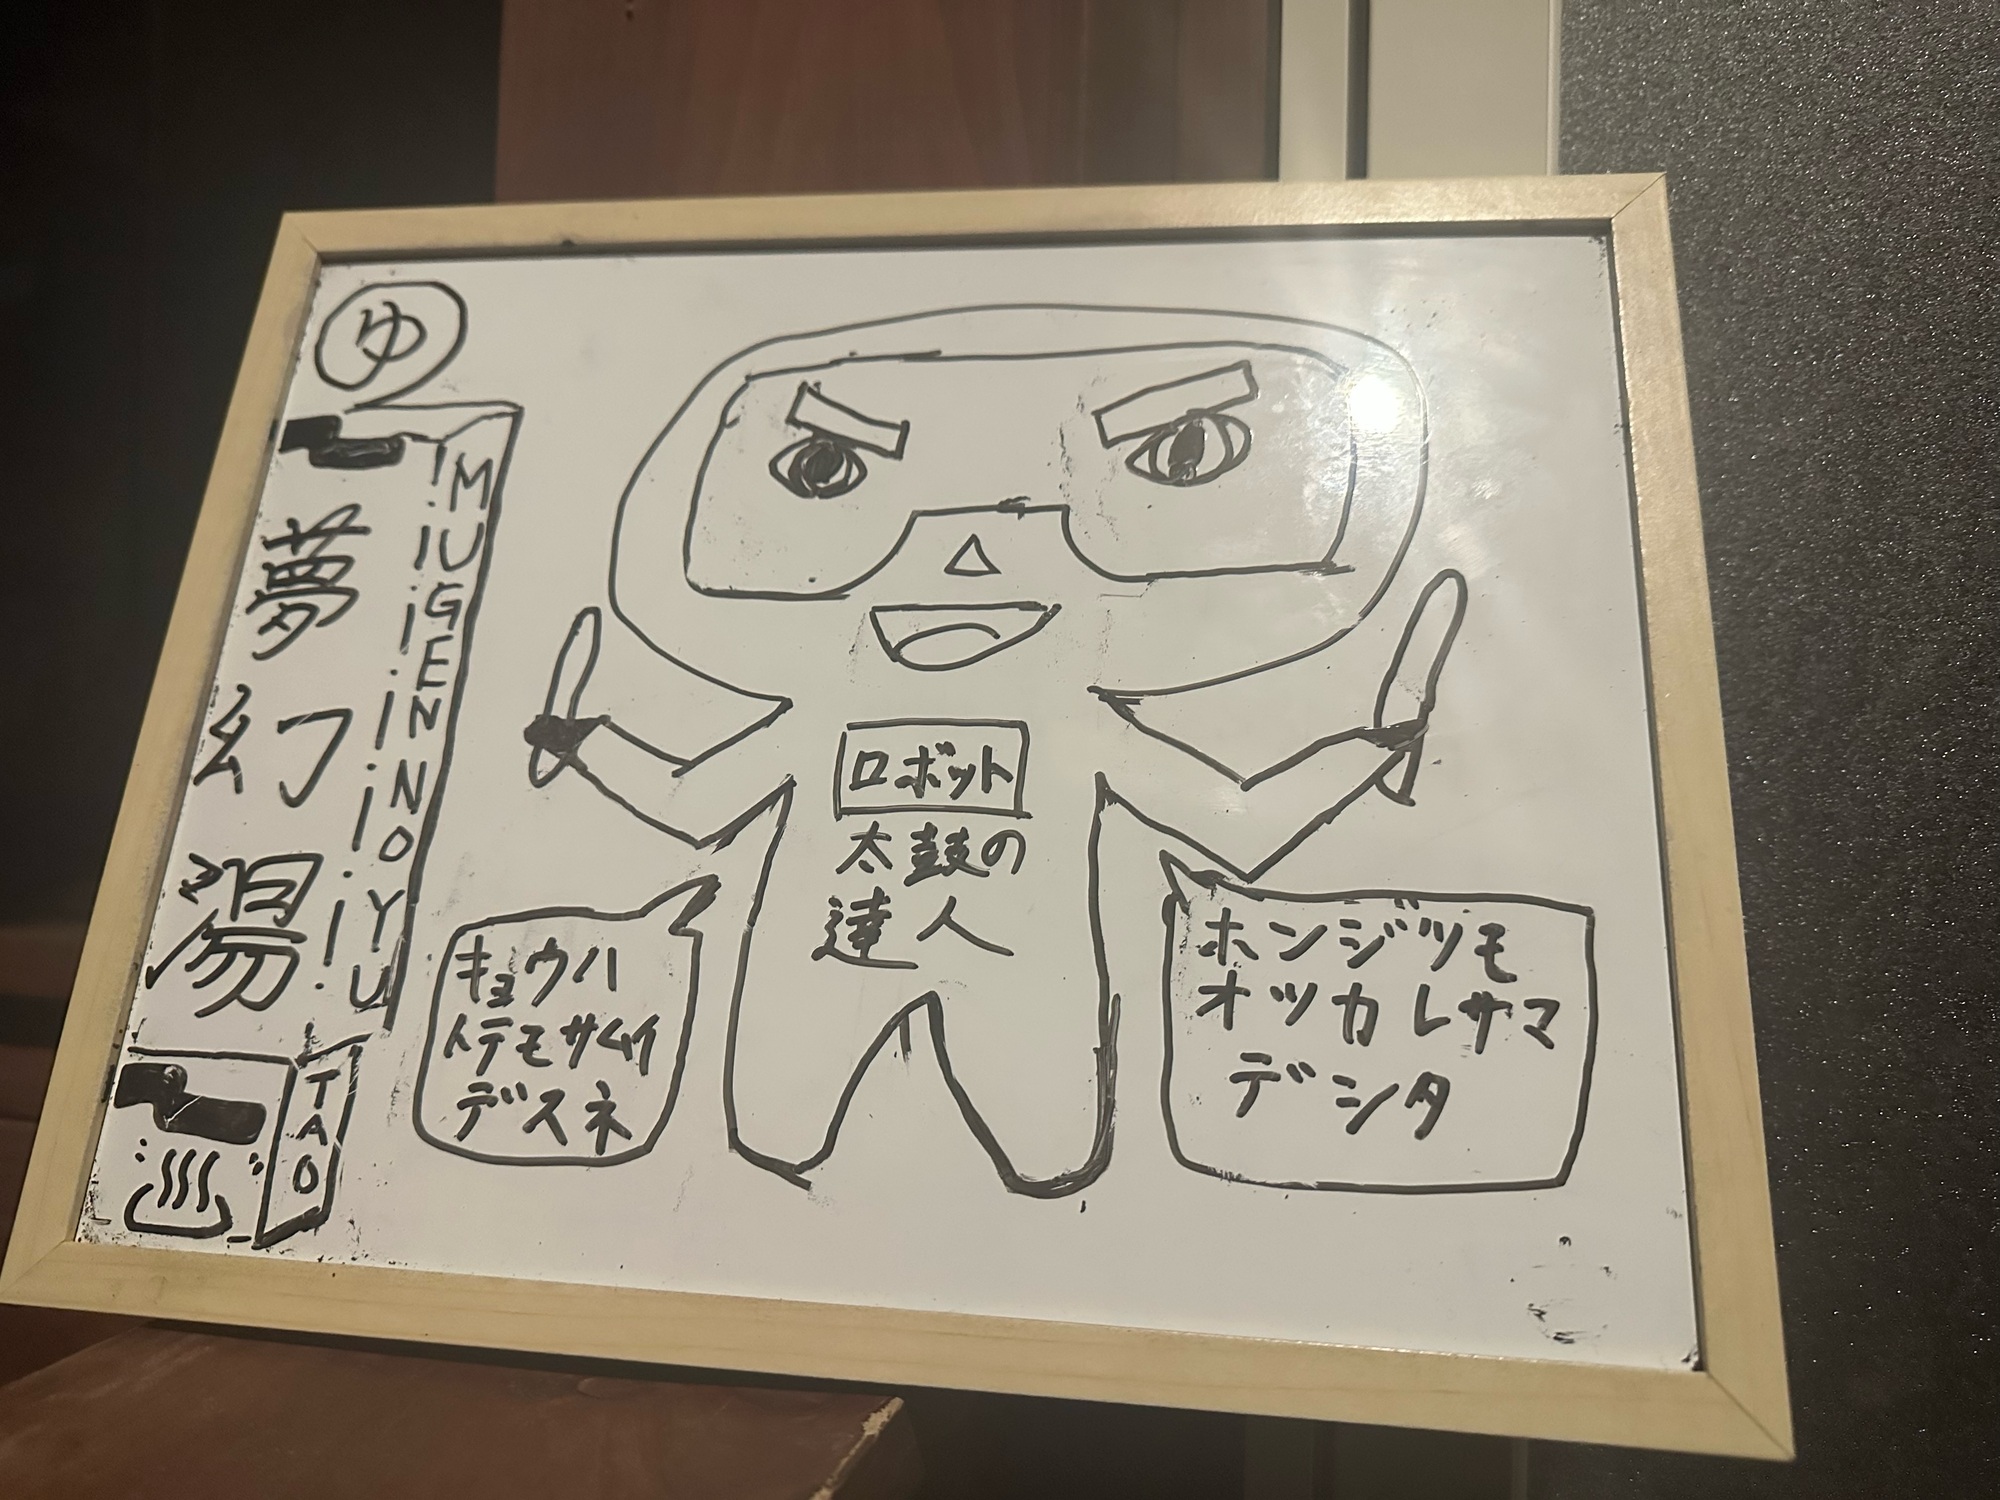 ゆ
夢幻湯
MUGEN NO YU
TAO
ロボット
太鼓の
達人
キョウハ
トテモサムイ
デスネ
ホンジツモ
オツカレサマ
デシタ